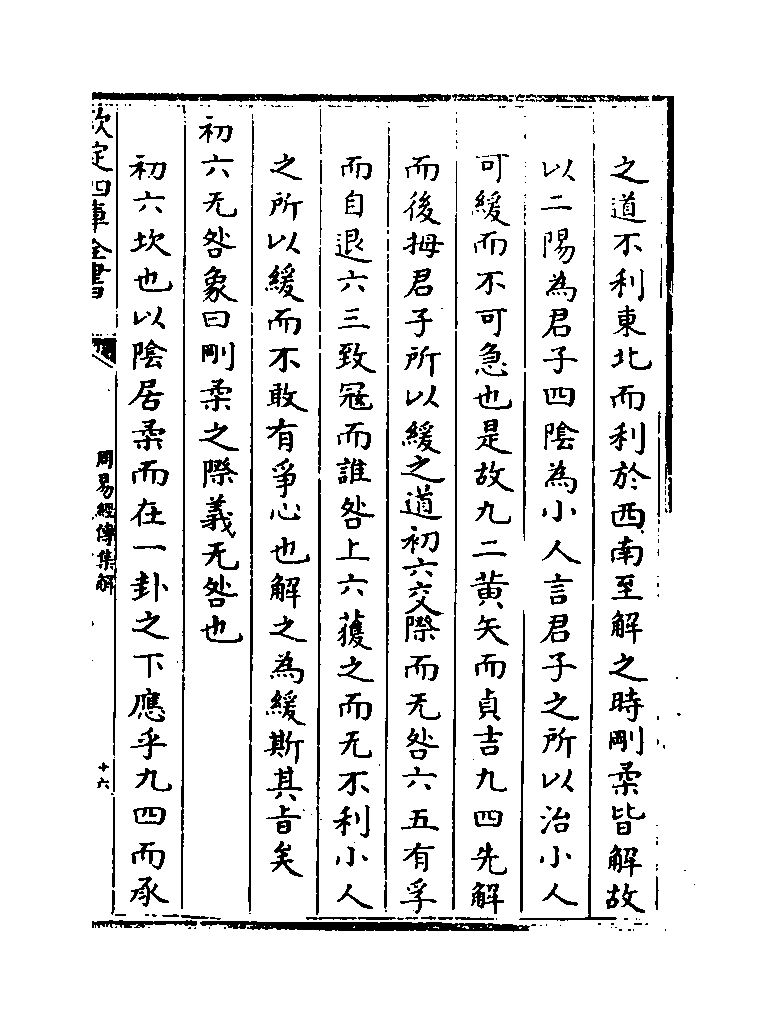 之道不利東北而利於西南至解之時剛柔皆解故
以二陽為君子四陰為小人言君子之所以治小人
可緩而不可急也是故九二黃矢而貞吉九四先解
而後拇君子所以緩之道初六交際而无咎六五有孚
而自退六三致寇而誰咎上六獲之而无不利小人
之所以緩而不敢有爭心也解之為緩斯其㫖矣
初六无咎象曰剛柔之際義无咎也
初六坎也以陰居柔而在一卦之下應乎九四而承
欽定四庫全書
周易經傳集解
十六